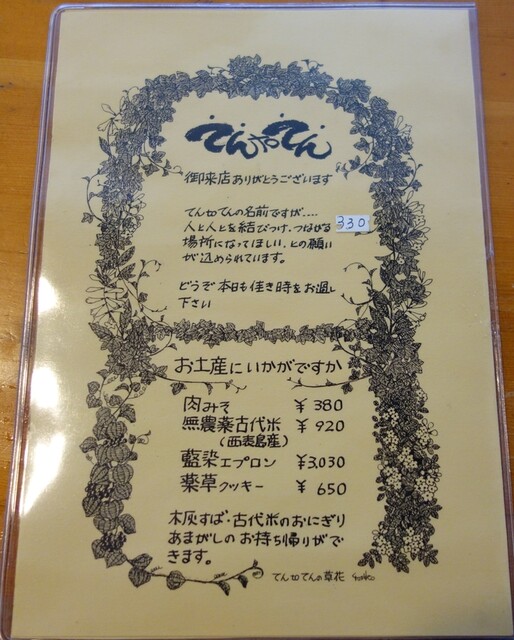 てんtoてん
御来店ありがとうございます
てんtoてんの名前ですが....
人と人とを結びつけ、つなげる
330
場所になってほしい、との願い
が込められています。
どうぞ本日も佳き時をお過し
下さい
お土産にいかがですか
肉みそ ¥380
無農薬古代米 ¥920
(西表島産)
藍染エプロン ¥3,030
薬草クッキー ¥650
木灰すば・古代米のおにぎり
あまがしのお持ち帰りがで
きます。
てんtoてんの草花